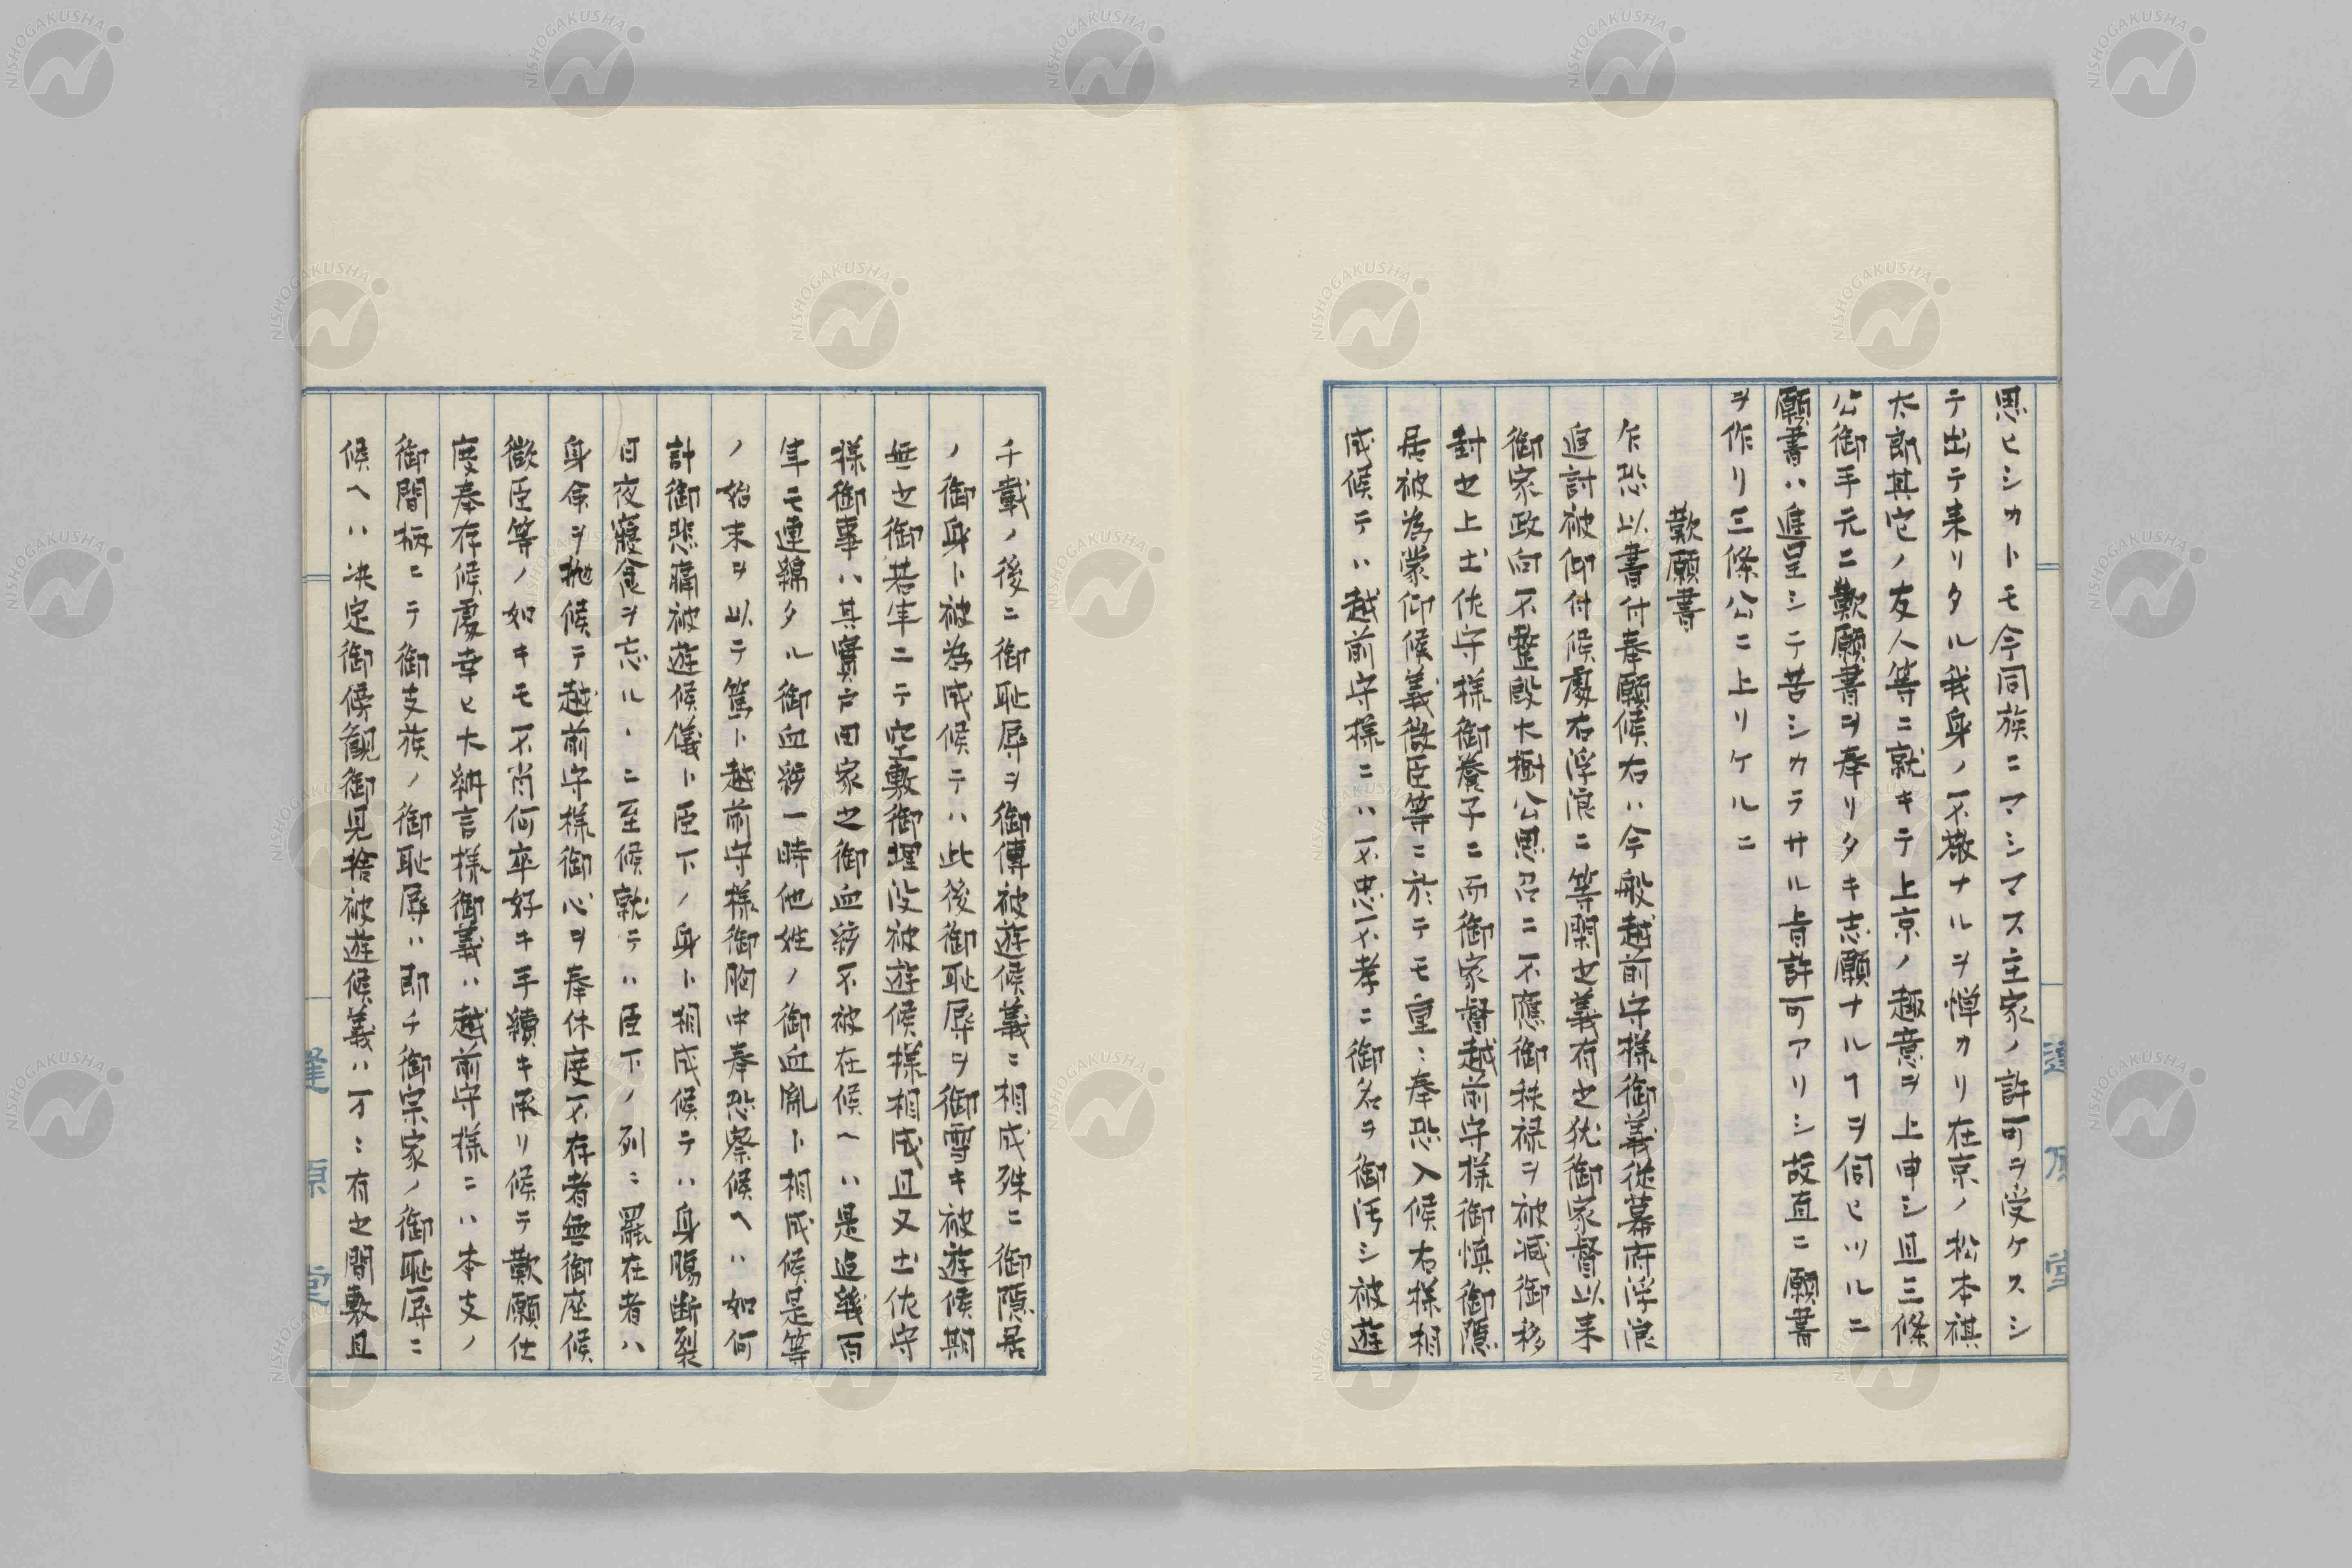 思ヒシカトモ今同族ニマシマス主家ノ許可ヲ受ケスシ
テ出テ来リタル我身ノ不敬ナルヲ憚カリ在京ノ松本祺
太郎其它ノ友人等ニ就キテ上京ノ趣意ヲ上申シ且三條
公御手元ニ歎願書ヲ奉リタキ志願ナルヿヲ伺ヒツルニ
願書ハ進呈シテ苦シカラサル旨許可アリシ故直ニ願書
ヲ作リ三條公ニ上リケルニ
歎願書
乍恐以書付奉願候右ハ今般越前守様御義従幕府浮浪
追討被仰付候處右浮浪ニ等閑之義有之犹御家督以来
御家政向不整段大樹公思召ニ不應御秩禄ヲ被減御移
封之上土佐守様御養子ニ而御家督越前守様御慎御隠
居被為蒙仰候義微臣等ニ於テモ重ニ奉恐入候右様相
成候テハ越前守様ニハ不忠不孝ニ御名ヲ御汚シ被遊
千載ノ後ニ御恥辱ヲ御傳被遊候義ニ相成殊ニ御隠居
ノ御身ト被為成候テハ此後御恥辱ヲ御雪キ被遊候期
無之御若年ニテ空敷御埋没被遊候様相成且又土佐守
様御事ハ其實戸田家之御血筋不被在候ヘハ是迄幾百
年モ連綿タル御血筋一時他姓ノ御血胤ト相成候是等
ノ始末ヲ以テ篤ト越前守様御胸中奉恐察候ヘハ如何
計御悲痛被遊候儀ト臣下ノ身ト相成候テハ身腸断裂
日夜寝食ヲ忘ルヽニ至候就テハ臣下ノ列ニ羅在者ハ
身命ヲ抛候テ越前守様御心ヲ奉休度不存者無御座候
微臣等ノ如キモ不肖何卒好キ手續キ承リ候テ歎願仕
度奉存候處幸ヒ大辨言様御義ハ越前守様ニハ本支ノ
御間柄ニテ御支族ノ御恥辱ハ即チ御宗家ノ御恥辱ニ
候ヘハ决定御傍観御見捨被遊候義ハ万ニ有之間敷且
蓬原堂